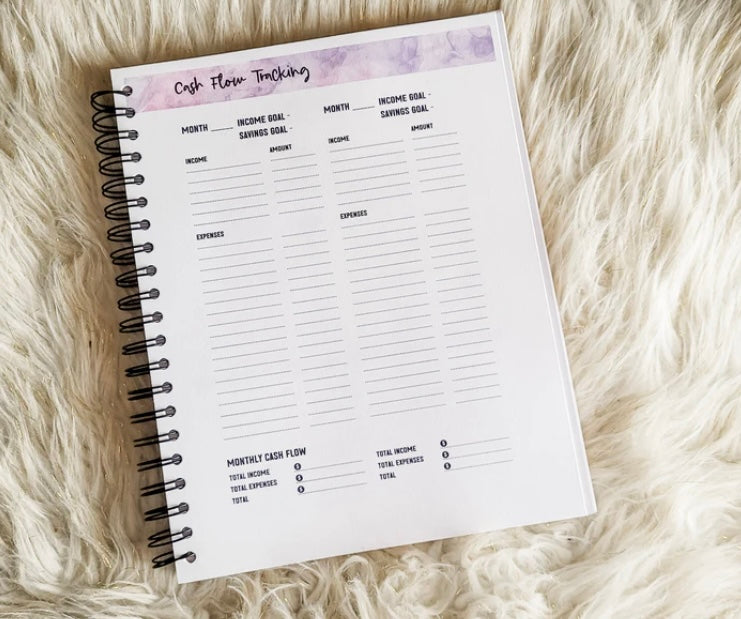 Cash Flow Tracking
MONTH _____ INCOME GOAL -
SAVINGS GOAL -
INCOME AMOUNT
EXPENSES
MONTH _____ INCOME GOAL -
SAVINGS GOAL -
INCOME AMOUNT
EXPENSES
MONTHLY CASH FLOW
TOTAL INCOME $
TOTAL EXPENSES $
TOTAL $
TOTAL INCOME $
TOTAL EXPENSES $
TOTAL $